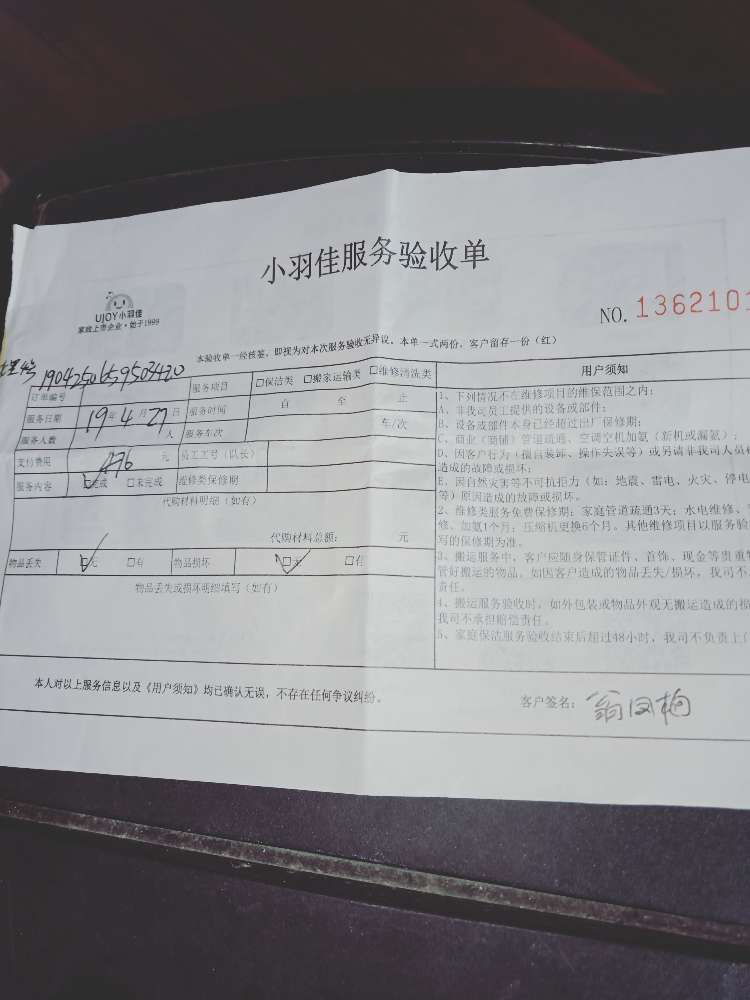 小羽佳服务验收单
UJOY小羽佳
家政上市企业·始于1999
NO. 1362101
本验收单一经核签，即视为对本次服务验收无异议。本单一式两份，客户留存一份（红）
订单编号 服务项目 □保洁类 □搬家运输类 □维修清洗类
服务日期 19年4月27日 服务时间 自 至 止
服务人数 人 服务车次 车/次
支付费用 476 元 员工工号（队长）
服务内容 □完成 □未完成 维修类保修期
代购材料明细（如有）
代购材料总额： 元
物品丢失 □无 □有 物品损坏 □无 □有
物品丢失或损坏明细填写（如有）
用户须知
1、下列情况不在维修项目的维保范围之内：
A、非我司员工提供的设备或部件；
B、设备或部件本身已经超过出厂保修期；
C、商业（商铺）管道疏通、空调空机加氟（新机或漏氟）；
D、因客户行为（擅自装卸、操作失误等）或另请非我司人员
造成的故障或损坏；
E、因自然灾害等不可抗拒力（如：地震、雷电、火灾、停电
等）原因造成的故障或损坏。
2、维修类服务免费保修期：家庭管道疏通3天；水电维修、
修、加氟1个月；压缩机更换6个月。其他维修项目以服务验
写的保修期为准。
3、搬运服务中，客户应随身保管证件、首饰、现金等贵重
管好搬运的物品。如因客户造成的物品丢失/损坏，我司不
责任。
4、搬运服务验收时，如外包装或物品外观无搬运造成的损
我司不承担赔偿责任。
5、家庭保洁服务验收结束后超过48小时，我司不负责上
本人对以上服务信息以及《用户须知》均已确认无误，不存在任何争议纠纷。
客户签名：翁凤梅